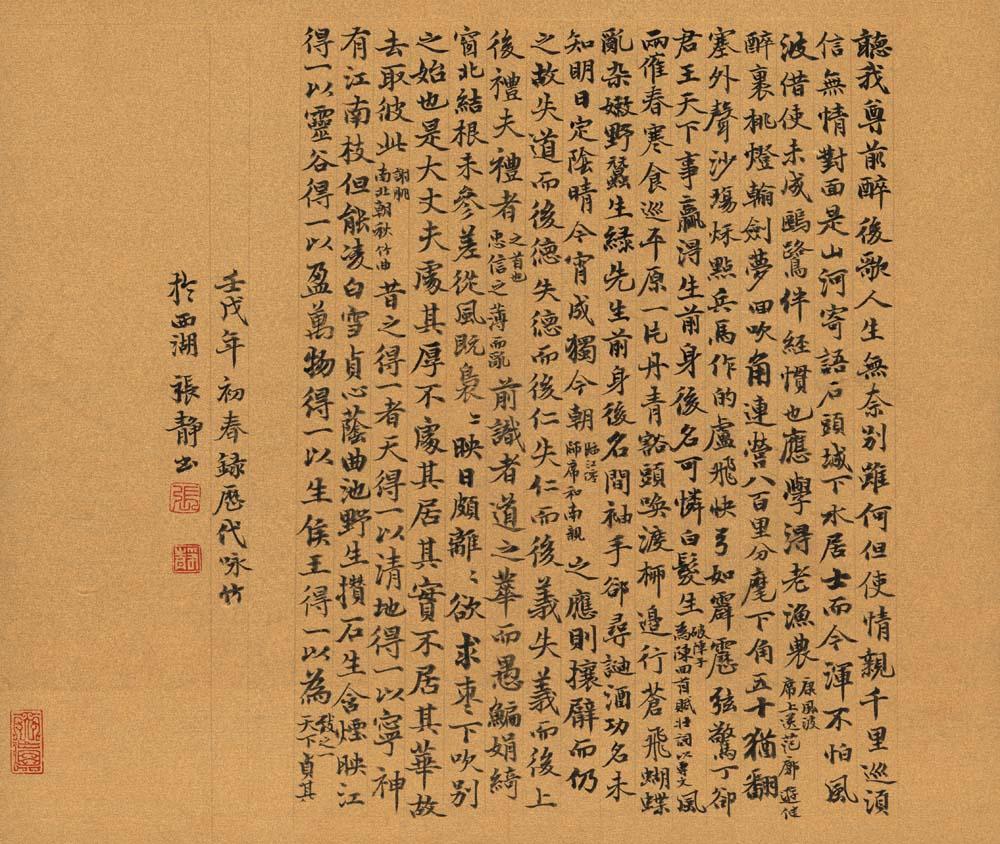 聽我尊前醉後歌人生無奈別離何但使情親千里巡湏
信無情對面是山河寄語石頭城下水居士而今渾不怕風
波借使未成鷗鷺伴經慣也應學淂老漁農 席上送范廓遊健
醉裏挑燈翰劍夢回吹角連營八百里分麾下角五十猶翻
塞外聲沙場秌點兵馬作的盧飛快弓如霹靂弦驚丁卻
君王天下事贏淂生前身後名可憐白髮生 破陣子 為陳四首賦壯詞以 風
雨催春寒食巡平原一片丹青谿頭喚渡桺邊行蒼飛蝴蝶
亂杂嫩野蠶生緑先生前身後名間袖手卻尋酒功名未
知明日定陰晴今宵成獨今朝 師席和南親 之應則攘臂而仍
之故失道而後德失德而後仁失仁而後義失義而後上
後禮夫禮者 之首也 忠信之薄而亂 前識者道之華而愚鯿娟綺
窗北結根未參差從風既裊﹅映日頗離﹅欲求枣下吹别
之始也是大丈夫處其厚不處其居其實不居其華故
去取彼此 謝朓 南北朝秋竹曲 昔之得一者天得一以清地得一以寧神
有江南枝但能凌白雪貞心蔭曲池野生攢石生含煙映江
得一以靈谷得一以盈萬物得一以生侯王得一以為 天下 貞其 致之一
壬戌年初春録歷代咏竹
扵西湖 張靜书
張
靜